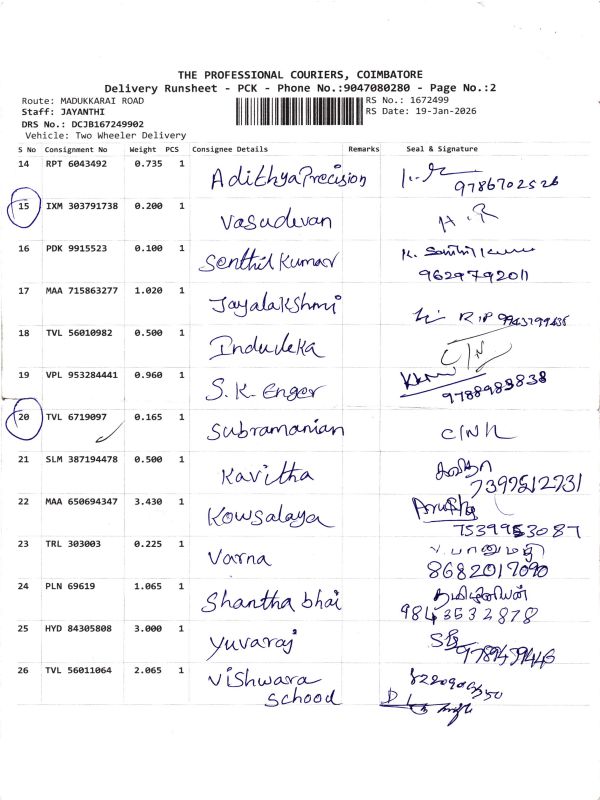 THE PROFESSIONAL COURIERS, COIMBATORE
Delivery Runsheet - PCK - Phone No.:9047080280 - Page No.:2
Route: MADUKKARAI ROAD RS No.: 1672499
Staff: JAYANTHI RS Date: 19-Jan-2026
DRS No.: DCJB167249902
Vehicle: Two Wheeler Delivery
S No Consignment No Weight PCS Consignee Details Remarks Seal & Signature
14 RPT 6043492 0.735 1 Adithya Precision 9786702526
15 IXM 303791738 0.200 1 Vasudevan H.R
16 PDK 9915523 0.100 1 Senthil Kumar K. Senthil Kumar
9629792011
17 MAA 715863277 1.020 1 Jayalakshmi
18 TVL 56010982 0.500 1 Indudeka C/N
19 VPL 953284441 0.960 1 S.K. Enger 9788983838
20 TVL 6719097 0.165 1 Subramanian
21 SLM 387194478 0.500 1 Kavitha கவிதா
22 MAA 650694347 3.430 1 Kowsalaya
7539953087
23 TRL 303003 0.225 1 Varna V. பானுமதி
8682017090
24 PLN 69619 1.065 1 Shantha bhai
9843532878
25 HYD 84305808 3.000 1 Yuvaraj
26 TVL 56011064 2.065 1 Vishwara
School